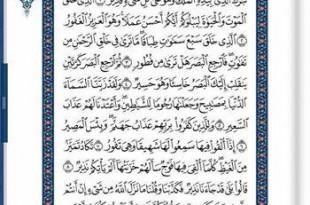 تَبَٰرَكَ ٱلَّذِى بِيَدِهِ ٱلْمُلْكُ وَهُوَ عَلَىٰ كُلِّ شَىْءٍ قَدِيرٌ ۝ ٱلَّذِى خَلَقَ
ٱلْمَوْتَ وَٱلْحَيَوٰةَ لِيَبْلُوَكُمْ أَيُّكُمْ أَحْسَنُ عَمَلًا وَهُوَ ٱلْعَزِيزُ ٱلْغَفُورُ
۝ ٱلَّذِى خَلَقَ سَبْعَ سَمَٰوَٰتٍ طِبَاقًا مَّا تَرَىٰ فِى خَلْقِ ٱلرَّحْمَٰنِ مِن
تَفَٰوُتٍ فَٱرْجِعِ ٱلْبَصَرَ هَلْ تَرَىٰ مِن فُطُورٍ ۝ ثُمَّ ٱرْجِعِ ٱلْبَصَرَ كَرَّتَيْنِ
يَنقَلِبْ إِلَيْكَ ٱلْبَصَرُ خَاسِئًا وَهُوَ حَسِيرٌ ۝ وَلَقَدْ زَيَّنَّا ٱلسَّمَآءَ
ٱلدُّنْيَا بِمَصَٰبِيحَ وَجَعَلْنَٰهَا رُجُومًا لِّلشَّيَٰطِينِ وَأَعْتَدْنَا لَهُمْ عَذَابَ
ٱلسَّعِيرِ ۝ وَلِلَّذِينَ كَفَرُوا۟ بِرَبِّهِمْ عَذَابُ جَهَنَّمَ وَبِئْسَ ٱلْمَصِيرُ
۝ إِذَآ أُلْقُوا۟ فِيهَا سَمِعُوا۟ لَهَا شَهِيقًا وَهِىَ تَفُورُ ۝ تَكَادُ تَمَيَّزُ
مِنَ ٱلْغَيْظِ كُلَّمَآ أُلْقِىَ فِيهَا فَوْجٌ سَأَلَهُمْ خَزَنَتُهَآ أَلَمْ يَأْتِكُمْ نَذِيرٌ ۝
قَالُوا۟ بَلَىٰ قَدْ جَآءَنَا نَذِيرٌ فَكَذَّبْنَا وَقُلْنَا مَا نَزَّلَ ٱللَّهُ مِن شَىْءٍ إِنْ أَنتُمْ